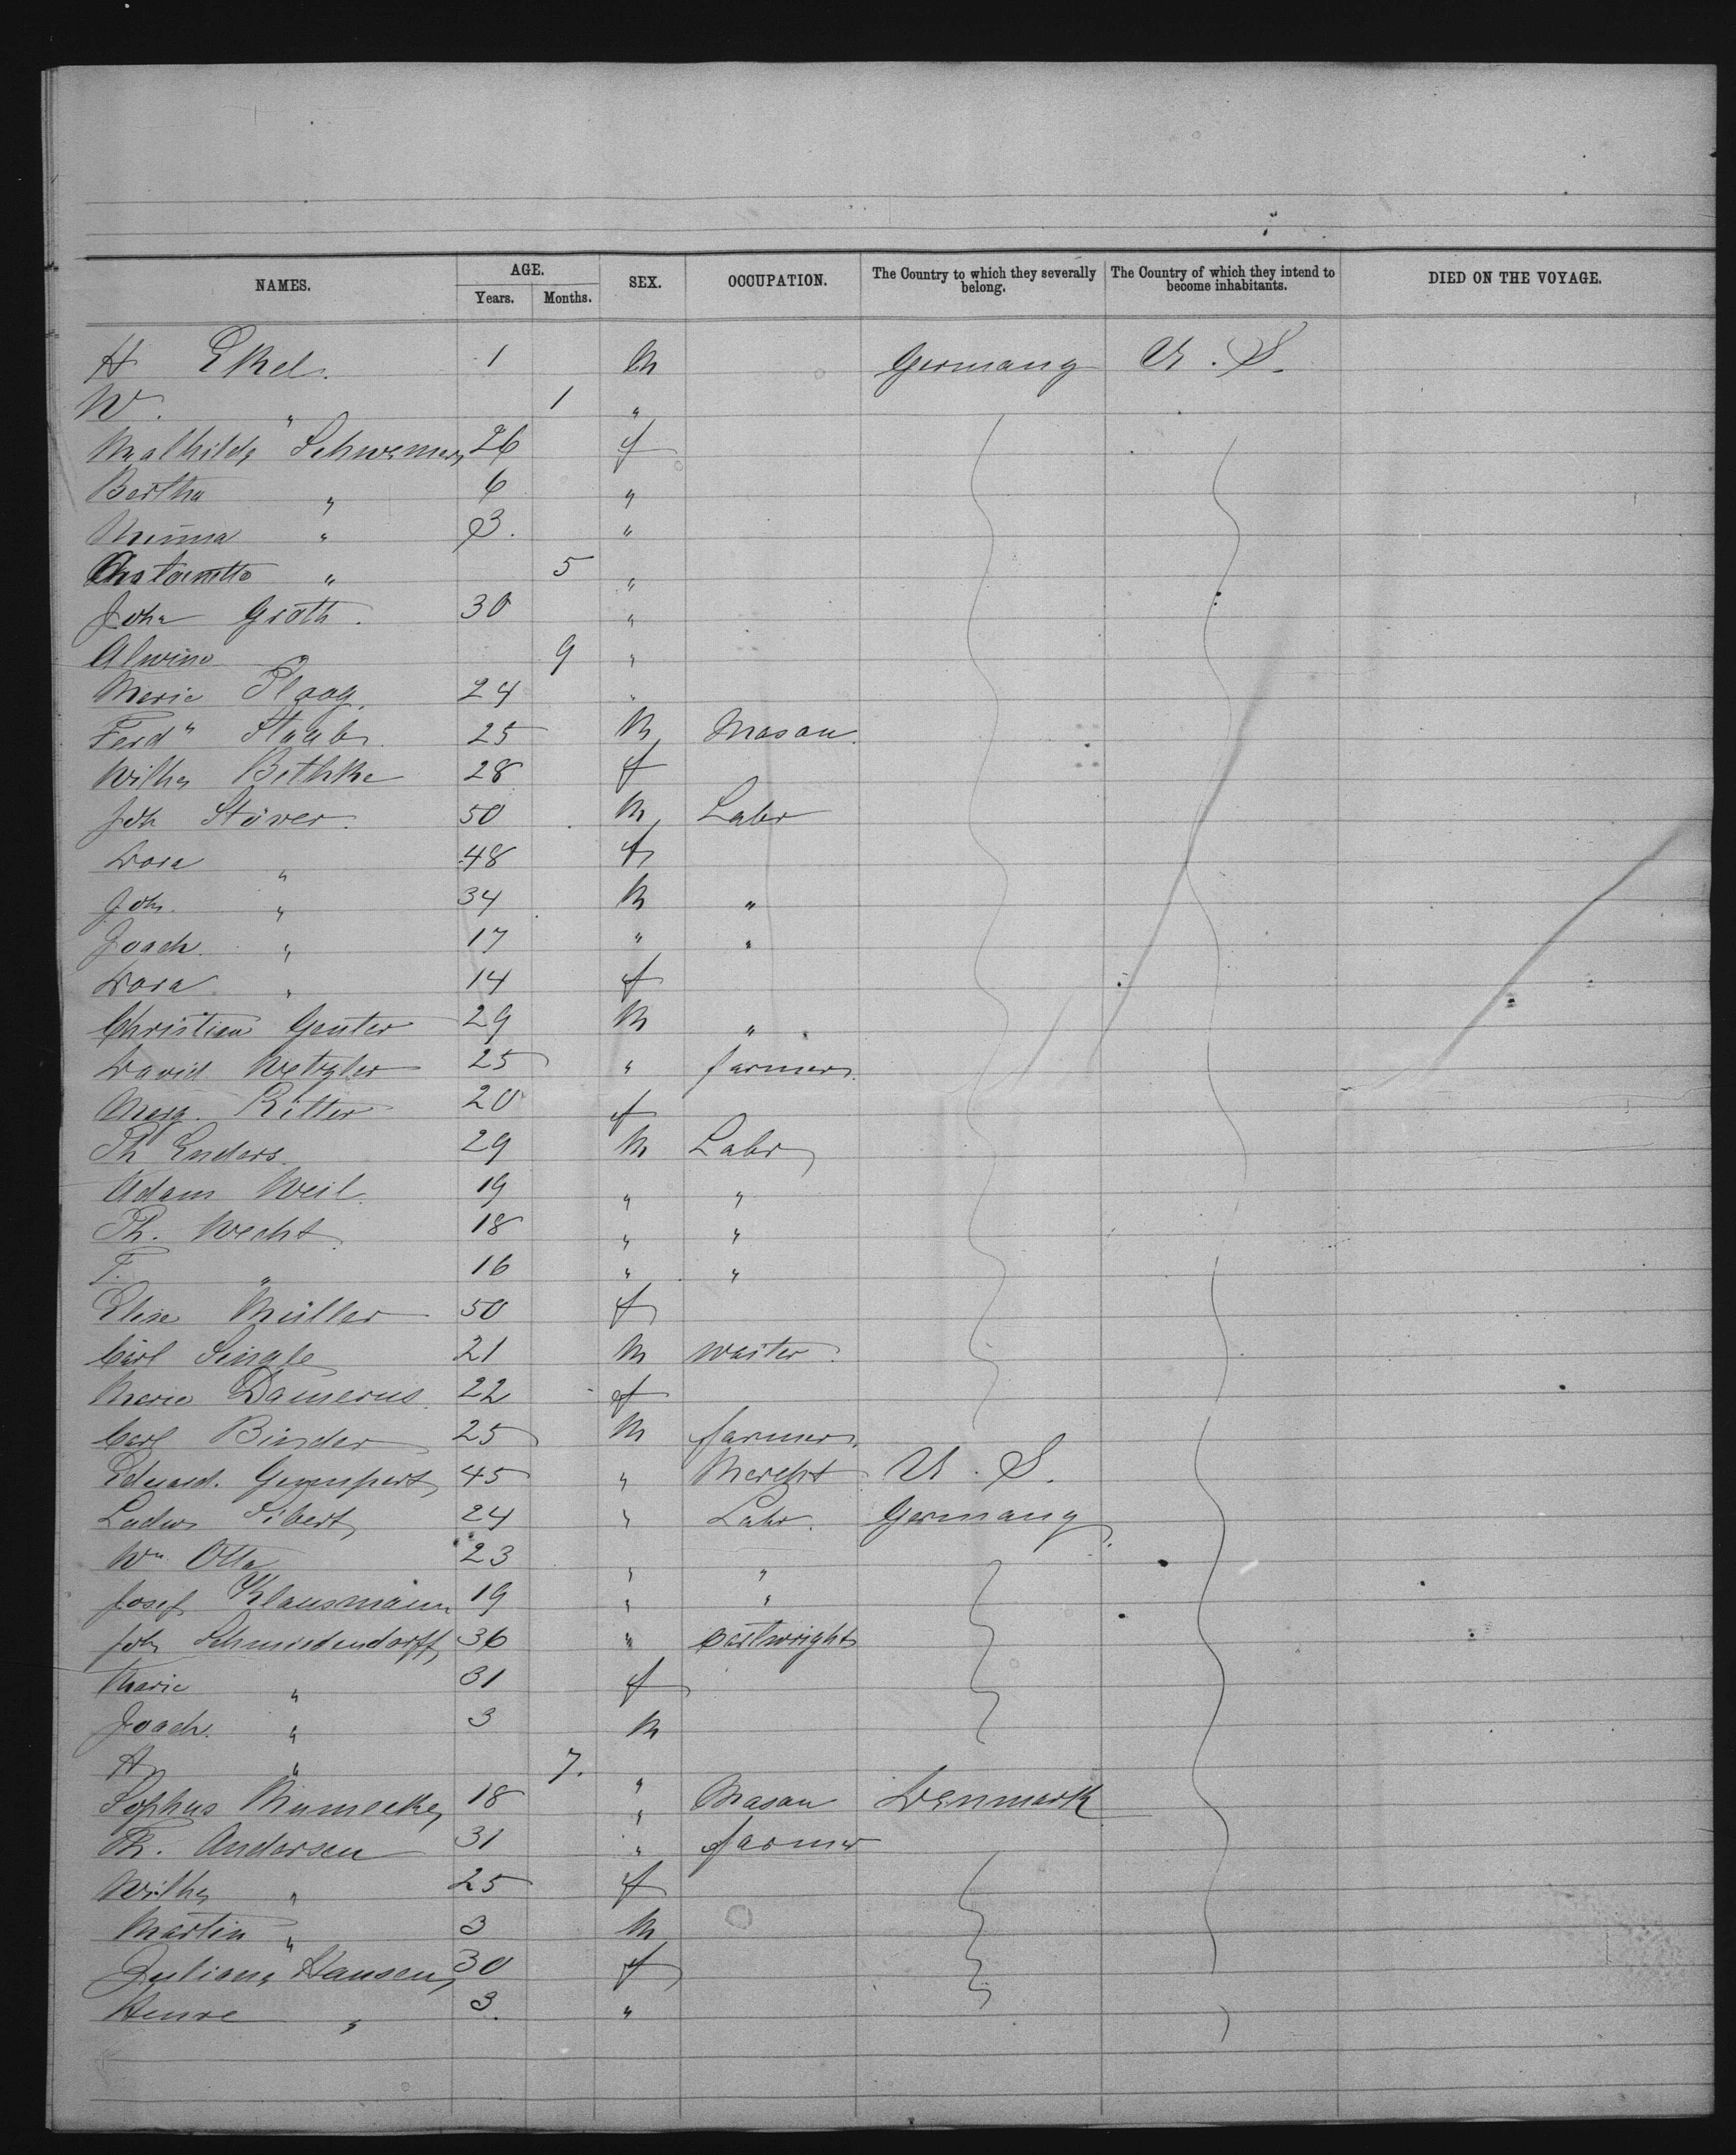 NAMES. AGE. SEX. OCCUPATION. The Country to which they severally belong. The Country of which they intend to become inhabitants. DIED ON THE VOYAGE.
Years. Months.
H Ekel. 1 M Germany U. S.
W. " 1 "
Mathilde Schwemer 26 f
Bertha " 6 "
Minna " 3. "
" 5 "
Joha Groth. 30 "
Alwine 9 "
Marie Plaag. 24 "
Ferd" Staab 25 M Mason
Wilhe Bethke 28 f
Joh Stöver. 50 M Labr
Dora " 48 f
Joh. " 34 M "
Joach. " 17 " "
Dora " 14 f
Christian Genter 29 M "
David Wetzler 25 " farmer.
Marg. Ritter 20 f
Ph Enders. 29 M Labr
Adam Weil. 19 " "
Ph. Wecht 18 " "
F. " 16 " "
Elise Müller 50 f
Carl Single 21 M waiter.
Marie Damerus. 22 f
Carl Binder 25 M farmer.
Eduard. 45 " Mercht U. S.
Ludw Sibert 24 " Labr. Germany
Wm Otto 23 " "
Josef Klausmann 19 " "
Joh Schmiedendorff 36 " Cartwright
Marie " 31 f
Joach. " 3 M
H " 7. "
Sophus 18 " Mason Denmark
Th. Andersen 31 " farmer
Wilhe " 25 f
Martin " 3 M
Juliane Hansen 30 f
" 3. "